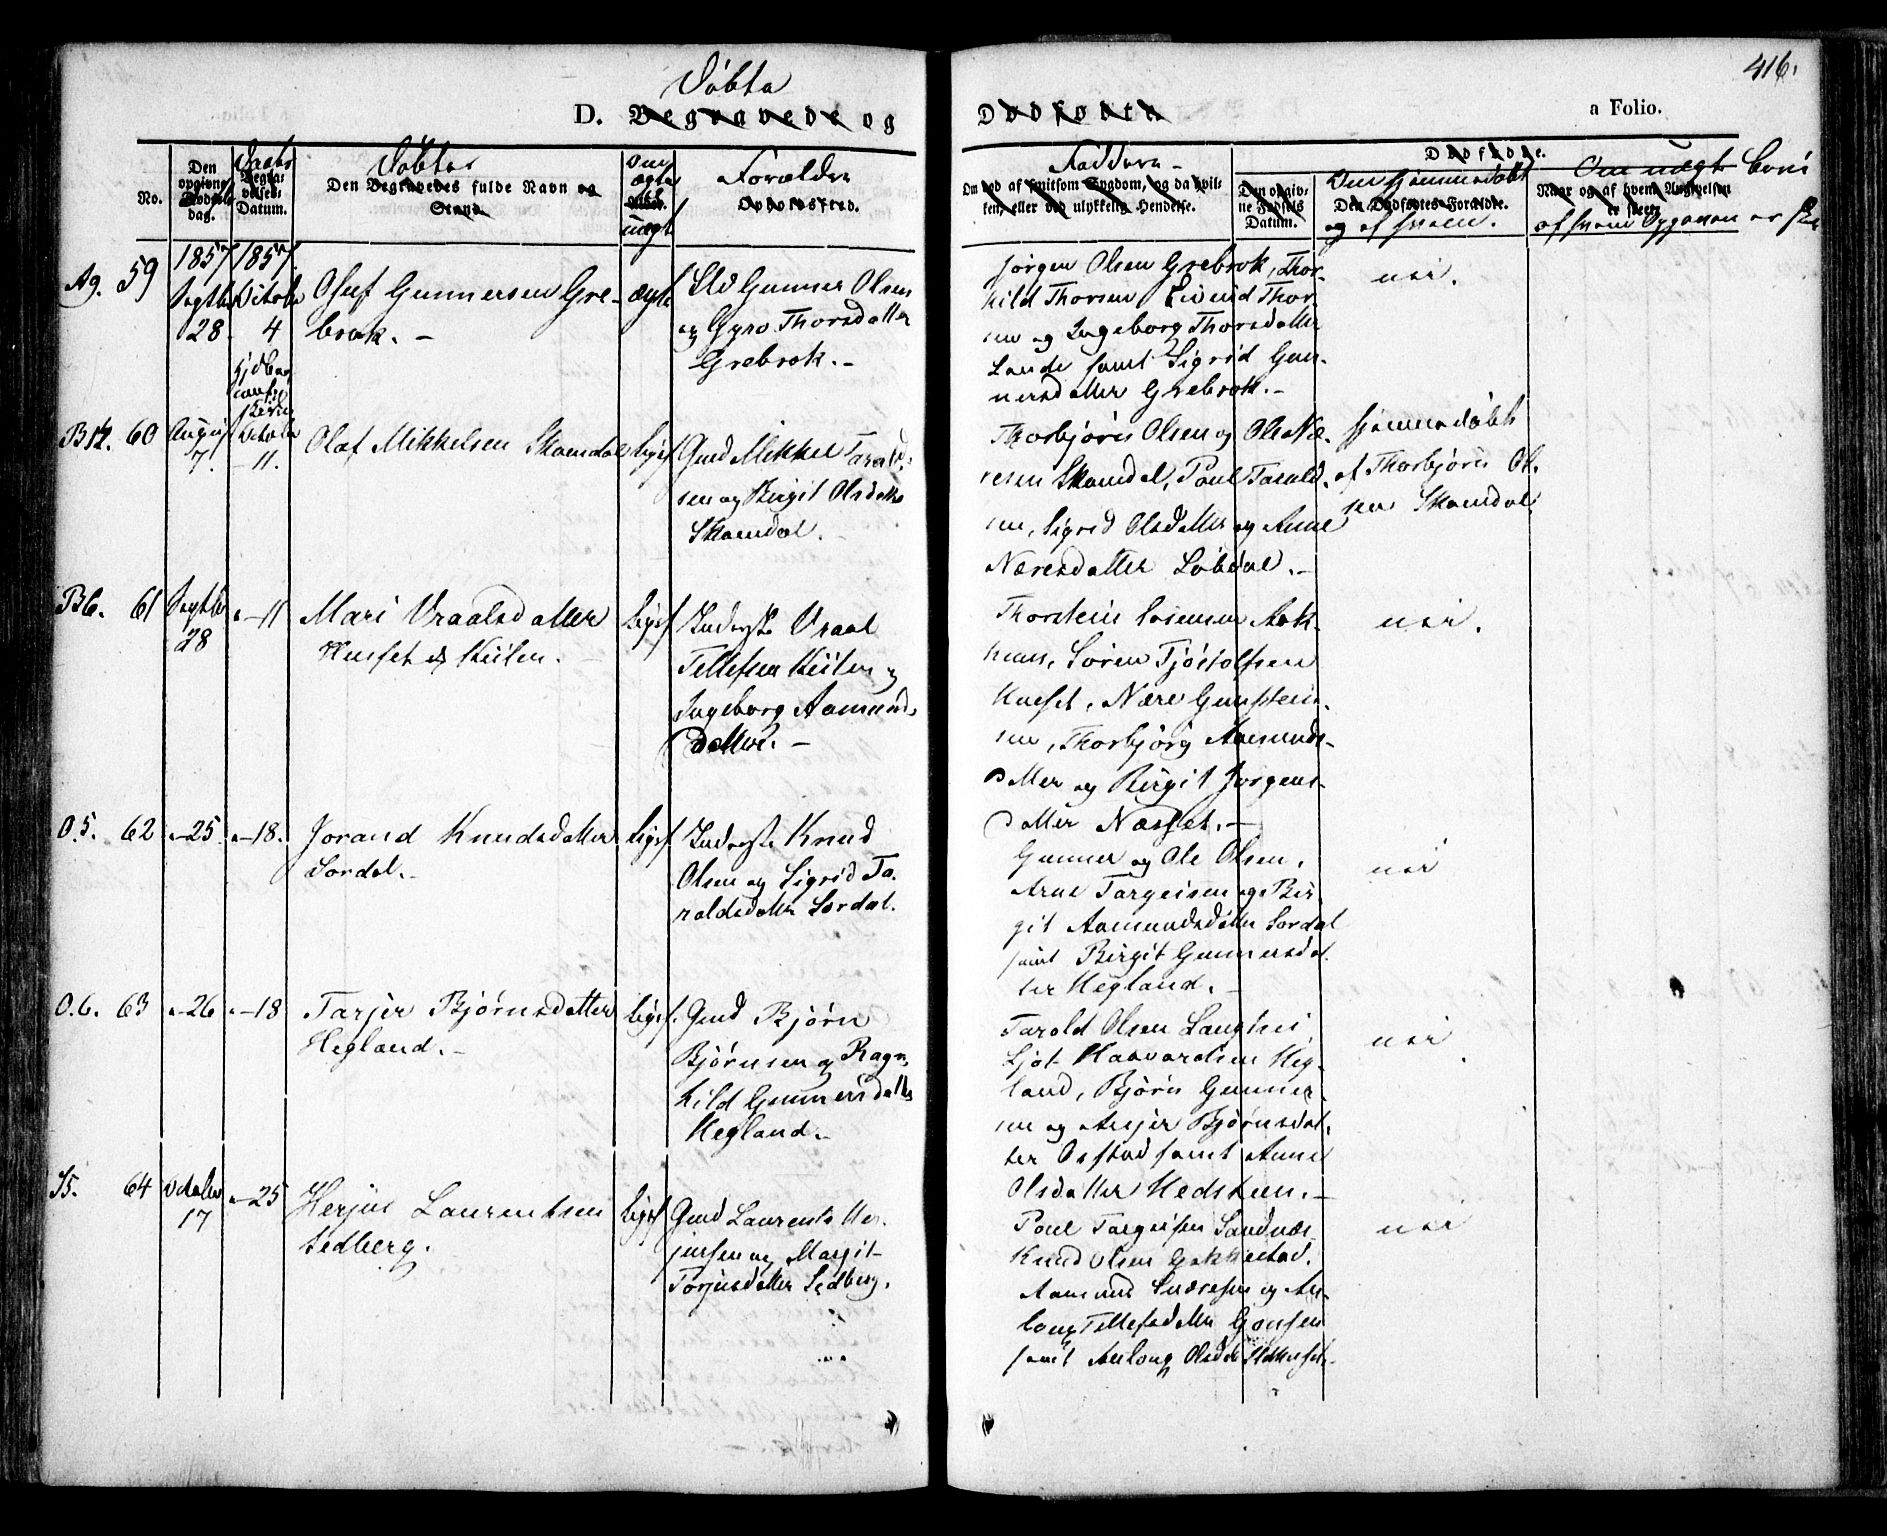 416.
Døbte
D. Begravede og
Dødfødte
a Folio.
No.
Den opgivne Fødselsdag.
Daabs
Begravelses-Datum.
Døbtes
Den Begravedes fulde Navn og Stand.
Om ægte eller uægte
Forældre
Opholdssted.
Faddere
Om død af smitsom Sygdom, og da hvilken, eller ved ulykkelig Hendelse.
Dødfødte.
Den opgivne Fødsels Datum.
Om hjemmedøbt
Den Dødfødtes Forældre.
og af hvem.
Om uægt
Naar og af hvem Angivelsen er skeet.
af hvem Opgaven er
1857 1857
Ag. 59
Septbr 28
Octobr 4
Oluf Gunnersen Gre-
brok. -
ægte
Gunner Olsen
og Gyro Thorsdatter
Grebrok. -
Jørgen Olsen Grebrok, Thor-
hild Thorsen Eivind Thor-
sen og Ingeborg Thorsdatter
Lande samt Sigrid Gun-
nersdatter Grebrok. -
nei.
60
August 7.
Octobr 11.
Olaf Mikkelsen Skomdal
ligesl
Gmd Mikkel Tarald-
sen og Birgit Olsdatter
Skomdal. -
Thorbjørn Olsen og Ole Næ-
resen Skomdal, Poul Tarald-
sen, Sigrid Olsdatter og Anne
Næresdatter Løbdal. -
hjemmedøbt
af Thorbjørn Ol-
sen Skomdal
B6. 61
Septbr 28
"-11
Mari Vraalsdatter
Huset Kiilen.
ligesl
Inderste Vraal
Tellefsen Kiilen og
Ingeborg Aamunds
datter. -
Thorstein
Søren Tjøstolfsen
Huset, Nære Gunstein-
sen, Thorbjørg Aamunds-
datter og Birgit Jørgens-
datter Næsset. -
nei.
O.5. 62
"-25
"-18.
Jorand Knudsdatter
Sordal. -
ligesl
Inderste Knud
Olsen og Sigrid Ta-
raldsdatter Sordal.
Gunner og Ole Olsen,
Arne Targeisen og Bir-
git Aamundsdatter Sordal
samt Birgit Gunnersdat-
ter Hegland. -
nei
O.6. 63
"-26
"-18
Tarjer Bjørnsdatter
Hegland. -
ligesl.
Gmd Bjørn
Bjørnsen og Ragn-
hild Gunnersdatter
Hegland. -
Tarald Olsen Langhei,
Ljot Haavardsen Heg-
land, Bjørn Gunner-
sen og Asjer Bjørnsdat-
ter samt Anne
Olsdatter Hedsteen. -
nei
64
October 17
"-25
Herjus Laurentsen
Lidberg.
ligesl
Gmd Laurents Her-
jusen og Margit
Torjusdatter Lidberg.
Poul Targeisen Sandnæs
Knud Olsen
Aamund Sværesen og As-
laug Tellefsdatter
samt Aslaug Olsdatter
nei